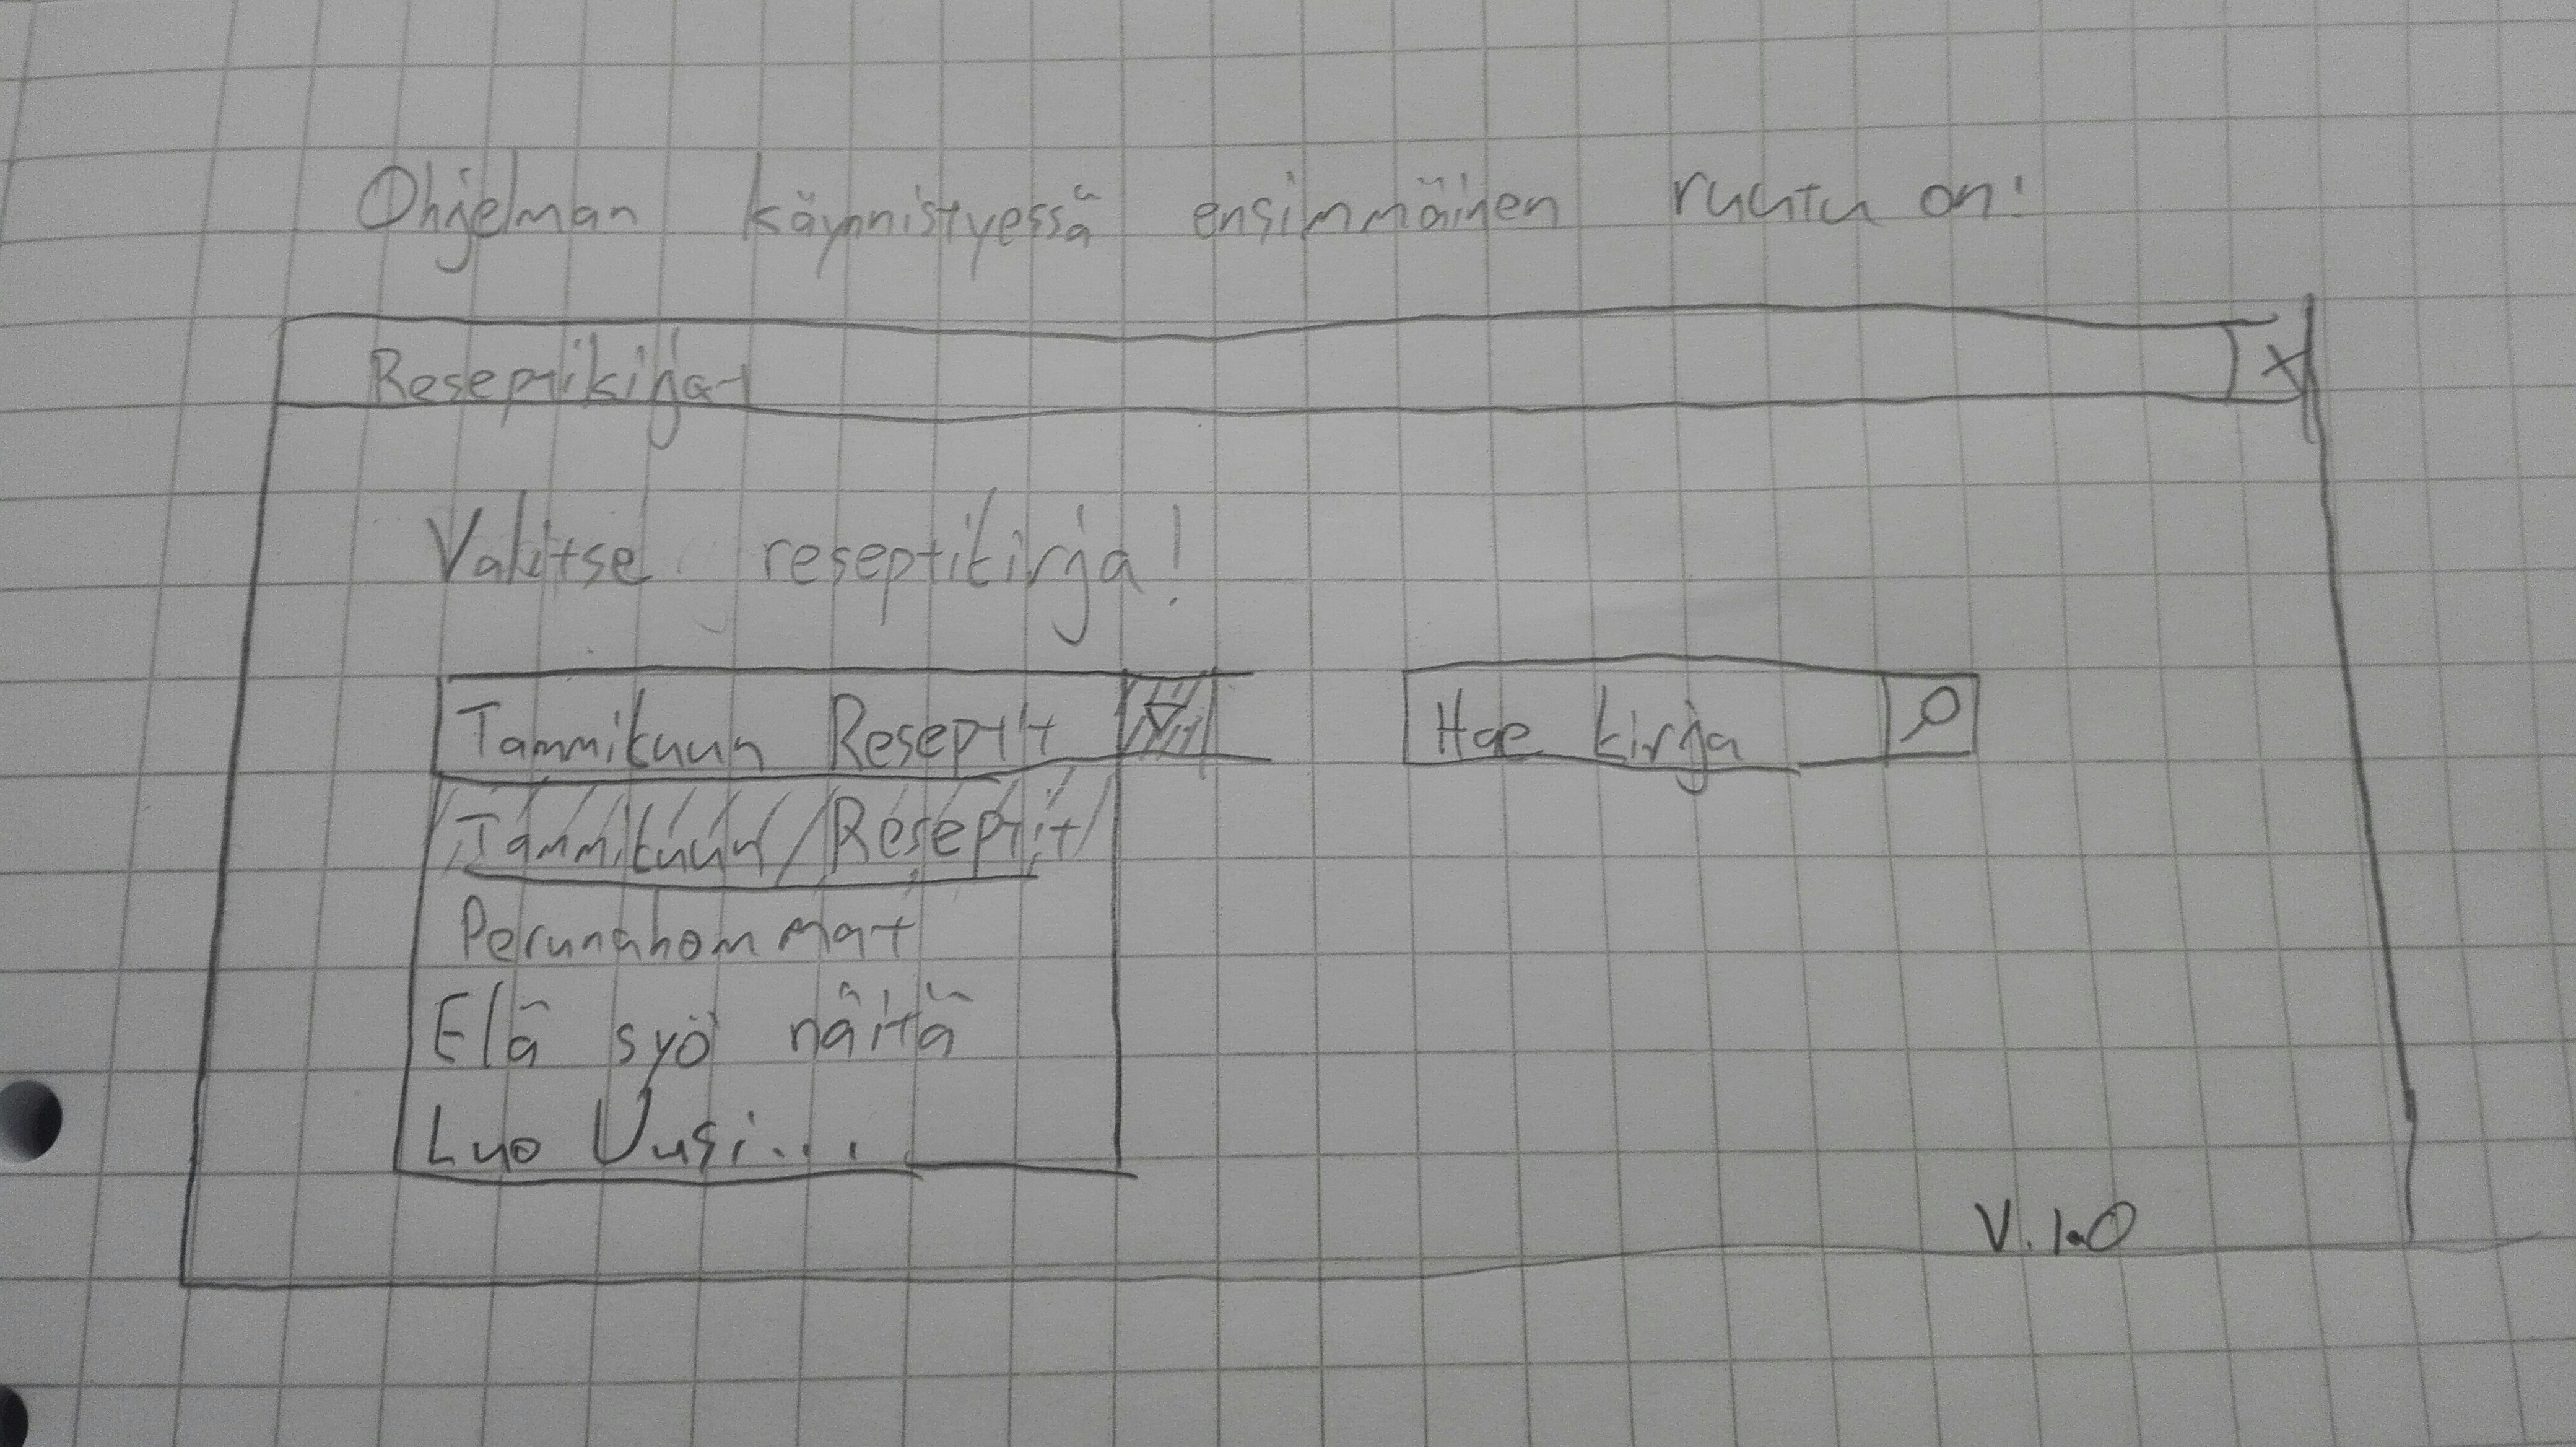 Ohjelman käynnistyessä ensimmäinen ruutu on:
Reseptikirjat X
Valitse reseptikirja!
Tammikuun Reseptit
Hae kirja
Tammikuun Reseptit
Perunahommat
Elä syö näitä
Luo Uusi...
V. 1.0